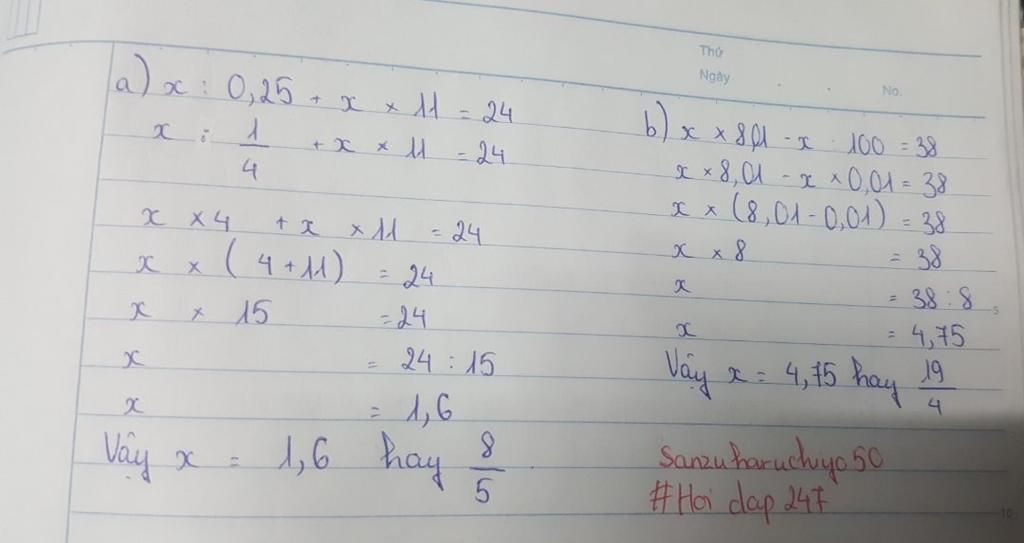 Thứ
Ngày
No.
a) x : 0,25 + x × 11 = 24
x : 1/4 + x × 11 = 24
x × 4 + x × 11 = 24
x × ( 4 + 11 ) = 24
x × 15 = 24
x = 24 : 15
x = 1,6
Vậy x = 1,6 hay 8/5
b) x × 8,01 - x : 100 = 38
x × 8,01 - x × 0,01 = 38
x × (8,01 - 0,01) = 38
x × 8 = 38
x = 38 : 8
5
x = 4,75
Vậy x = 4,75 hay 19/4
Sanzuharuchiyo50
#Hoi dap 247
10